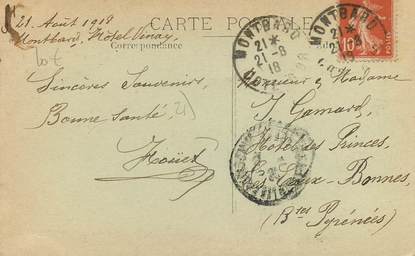 21. Août 1918
Montbard, Hôtel
CARTE POSTALE
Correspondance
Sincères Souvenirs,
Bonne Santé,
Monsieur & Madame
J Gamard,
Hôtel des Princes,
Les Eaux-Bonnes,
(Bses Pyrénées)
MONTBARD
21 *
21-8
18
CÔTE D'OR
MONTBARD
21 *
18
10